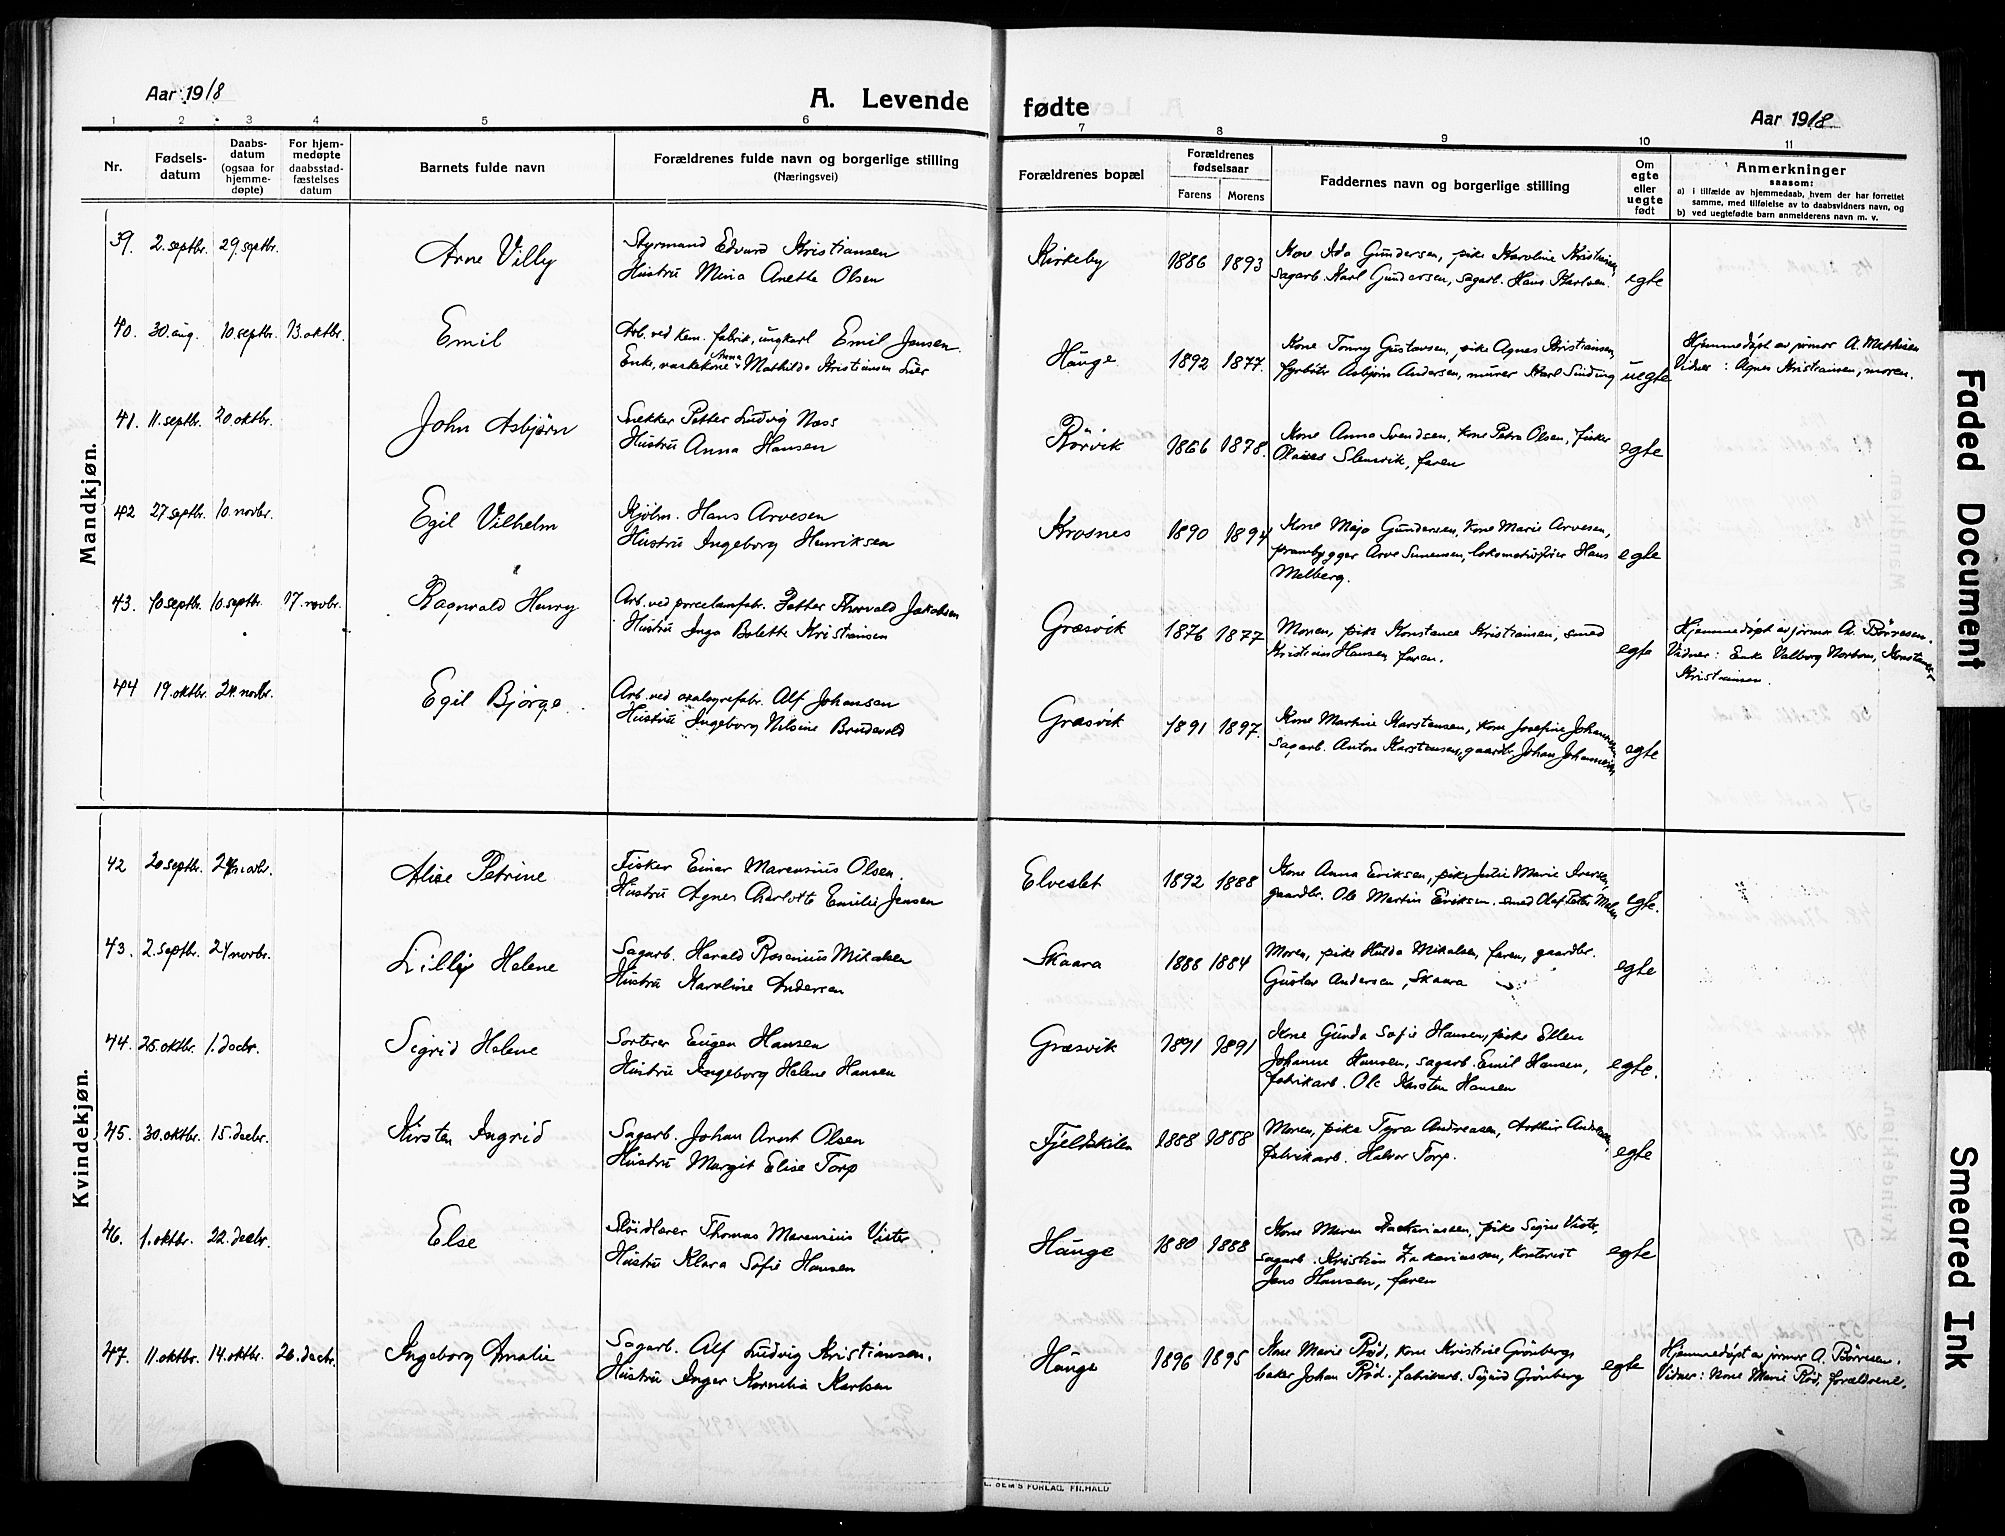 Aar 1918
A. Levende fødte
Aar 1918
1 2 3 4 5 6 7 8 9 10 11
Nr.
Fødsels-
datum
Daabs-
datum
(ogsaa for
hjemme-
døpte)
For hjem-
medøpte
daabsstad-
fæstelses
datum
Barnets fulde navn
Forældrenes fulde navn og borgerlige stilling
(Næringsvei)
Forældrenes bopæl
Forældrenes
fødselsaar
Farens Morens
Faddernes navn og borgerlige stilling
Om
egte
eller
uegte
født
Anmerkninger
saasom:
a) i tilfælde av hjemmedaab, hvem der har forrettet
samme, med tilføielse av to daabsvidners navn, og
b) ved uegtefødte barn anmelderens navn m. v.
Mandkjøn.
39. 2. septbr. 29. septbr. Arne Villy
Styrmand Edvard Kristiansen
Hustru Mina Anette Olsen
Kirkeby 1886 1893
Kone Ida Gundersen, pike Karoline Kristiansen,
sagarb. Karl Gundersen, sagarb. Hans
egte
40. 30 aug. 10. septbr. 13. oktbr. Emil
Arb. ved kem. fabrik, ungkarl Emil Jensen.
Enke, vaskekone Anna Mathilde Kristiansen Lier
Hauge 1892 1877.
Kone Tonny Gustavsen, pike Agnes Kristiansen,
fyrbøter Asbjørn Andersen, murer Karl Sinding
uegte
Hjemmedøpt av jormor A. Mathisen
Vidner: Agnes Kristiansen, moren.
41. 11. septbr. 20. oktbr. John Asbjørn
Snekker Petter Ludvig Næss
Hustru Anna Hansen
Rörvik 1866 1878.
Kone Anna Svendsen, kone Petra Olsen, fisker
Slensvik, faren
egte
42 27 septbr. 10. novbr. Egil Vilhelm
Kjölm. Hans Arvesen
Hustru Ingeborg Henriksen
Krosnes 1890 1894
Kone Maja Gundersen, kone Marie Arvesen,
prambygger Arve Simensen, lokomotivfører Hans
Melberg.
egte
43. 10 septbr. 10. septbr. 17. novbr. Ragnvald Henry
Arb. ved porcelænfabr. Petter Thorvald Jakobsen
Hustru Inga Bolette Kristiansen
Græsvik 1876 1877
Moren, pike Konstance Kristiansen, smed
Kristian Hansen, faren.
egte
Hjemmedøpt av jormor A. Børresen.
Vidner: Enke Valborg Norbom, Konstance
Kristiansen.
44 19. oktbr. 24. novbr. Egil Bjørge.
Arb. ved oxalsyrefabr. Alf Johansen
Hustru Ingeborg Nilsine Brudevold
Græsvik 1891 1897.
Kone Martine Karstensen, kone Josefine Johannesen,
sagarb. Anton Karstensen, gaardbr. Johan Johannesen
egte
Kvindekjøn.
42 20 septbr. 24 novbr. Alise Petrine
Fisker Einar Marensius Olsen.
Hustru Agnes Charlotte Emilie Jensen
Elveslet 1892 1888
Kone Anna Eriksen, pike Julie Marie Iversen,
gaardbr. Ole Martin Eriksen. smed Olaf Petter Malm
egte.
43. 2. septbr. 24 novbr. Lilly Helene
Sagarb. Harald Rosenius Mikalsen
Hustru Karoline Andersen
Skaara 1888 1884
Moren, pike Hulda Mikalsen, faren, gaardbr.
Gustav Andersen, Skaara
egte
44. 25. oktbr. 1. decbr. Sigrid Helene
Sorterer Eugen Hansen
Hustru Ingeborg Helene Hansen
Græsvik 1891 1891
Kone Gunda Sofie Hansen, pike Ellen
Johanne Hansen, sagarb. Emil Hansen,
fabrikarb. Ole Karsten Hansen
egte.
45. 30. oktbr. 15. decbr. Kirsten Ingrid
Sagarb. Johan Arent Olsen
Hustru Margit Elise Torp
Fjeldskilen 1888 1888
Moren, pike Tyra Andreasen, Arthur Andreasen,
fabrikarb. Halvor Torp.
egte
46. 1. oktbr. 22. decbr. Else
Slöidlærer Thomas Marensius Vister
Hustru Klara Sofie Hansen
Hauge 1880 1888
Kone Maren Zachariassen, pike Signe Vister,
sagarb. Kristian Zakariassen, kontorist
Jens Hansen, faren
egte
47. 11. oktbr. 14. oktbr. 26. decbr. Ingeborg Amalie
Sagarb. Alf Ludvig Kristiansen.
Hustru Inger Kornelia Karlsen
Hauge 1896 1895
Kone Marie Rød, kone Kristine Grönberg,
baker Johan Rød. fabrikarb. Sigurd Grönberg
egte
Hjemmedøpt av jormor A. Børresen.
Vidner: Kone Marie Rød, forældrene.
SEM'S FORLAG, FR.HALD
Faded Document
Smeared Ink